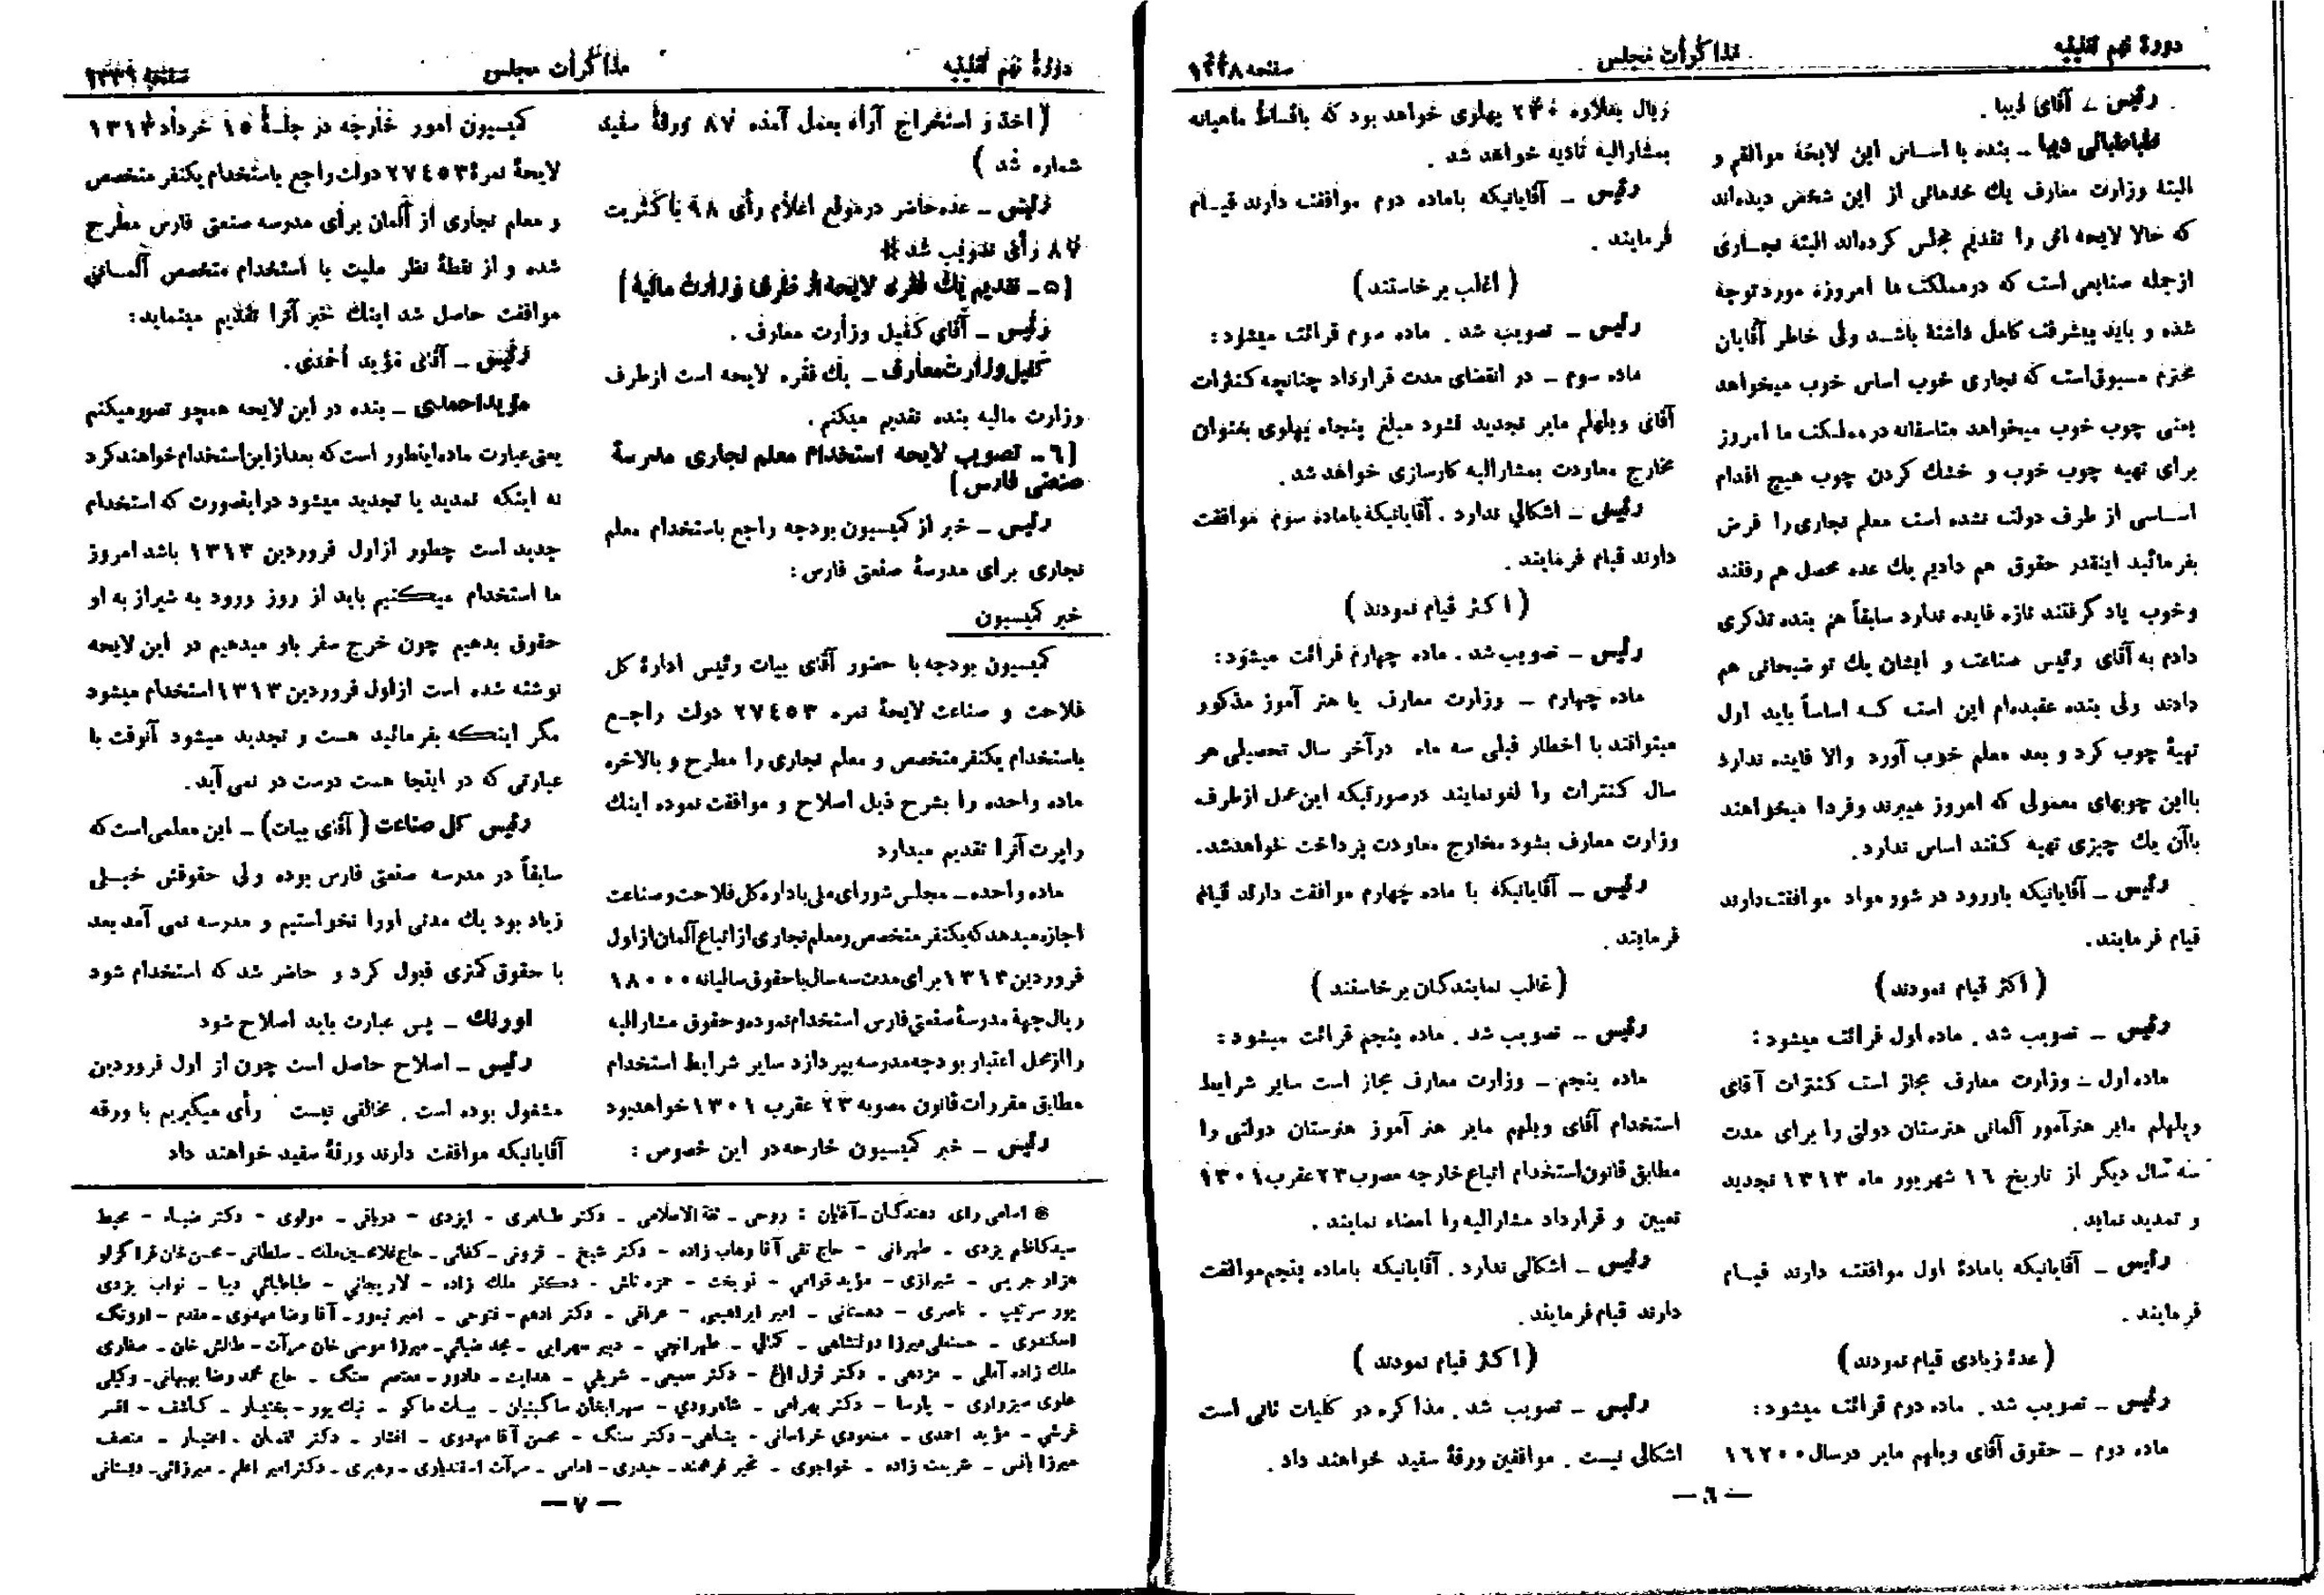 دورهٔ نهم تقنینیه
مذاکرات مجلس
صفحه ۱۳۳۸
رئیس – آقای دیبا.
طباطبائی دیبا – بنده با اساس این لایحهٔ موافقم و
البته وزارت معارف یك خدماتی از این شخص دیده‌اند
که حالا لایحه ائی را تقدیم مجلس کرده‌اند البته نجاری
ازجمله صنایعی است که درمملکت ما امروزه مورد توجه
شده و باید پیشرفت کامل داشته باشد ولی خاطر آقایان
محترم مسبوق است که نجاری خوب اساس خوب میخواهد
یعنی چوب خوب میخواهد متاسفانه در مملکت ما امروز
برای تهیه چوب خوب و خشك کردن چوب هیچ اقدام
اساسی از طرف دولت نشده است معلم نجاری را فرض
بفرمائید اینقدر حقوق هم دادیم یك عده محصل هم رفتند
وخوب یاد گرفتند تازه فایده ندارد سابقاً هم بنده تذکری
دادم به آقای رئیس صناعت و ایشان یك توضیحاتی هم
دادند ولی بنده عقیده‌ام این است که اساساً باید اول
تهیهٔ چوب کرد و بعد معلم خوب آورد والا فایده ندارد
بااین چوبهای معمولی که امروز میبرند وفردا میخواهند
باآن یك چیزی تهیه کنند اساس ندارد.
رئیس – آقایانیکه باورود در شور مواد موافقت دارند
قیام فرمایند.
(اکثر قیام نمودند)
رئیس – تصویب شد. ماده اول قرائت میشود:
ماده اول – وزارت معارف مجاز است کنترات آقای
ویلهلم مایر هنرآموز آلمانی هنرستان دولتی را برای مدت
سه سال دیگر از تاریخ ۱٦ شهریور ماه ۱۳۱۳ تجدید
و تمدید نماید.
رئیس – آقایانیکه بامادهٔ اول موافقند دارند قیام
فرمایند.
(عدهٔ زیادی قیام نمودند)
رئیس – تصویب شد. ماده دوم قرائت میشود:
ماده دوم – حقوق آقای ویلهم مایر درسال ۱٦۲۰۰
ریال بعلاوه ۲۴۰ پهلوی خواهد بود که باقساط ماهیانه
بمشارالیه تادیه خواهد شد.
رئیس – آقایانیکه باماده دوم موافقت دارند قیام
فرمایند.
(اغلب برخاستند)
رئیس – تصویب شد. ماده سوم قرائت میشود:
ماده سوم – در انقضای مدت قرارداد چنانچه کنترات
آقای ویلهلم مایر تجدید نشود مبلغ پنجاه پهلوی بعنوان
مخارج معاودت بمشارالیه کارسازی خواهد شد.
رئیس – اشکالی ندارد. آقایانیکه باماده سوم موافقت
دارند قیام فرمایند.
(اکثر قیام نمودند)
رئیس – تصویب شد. ماده چهارم قرائت میشود:
ماده چهارم – وزارت معارف یا هنر آموز مذکور
میتوانند با اخطار قبلی سه ماه درآخر سال تحصیلی هر
سال کنترات را لغو نمایند درصورتیکه این عمل ازطرف
وزارت معارف بشود مخارج معاودت پرداخت خواهد شد.
رئیس – آقایانیکه با ماده چهارم موافقت دارند قیام
فرمایند.
(غالب نمایندگان برخاستند)
رئیس – تصویب شد. ماده پنجم قرائت میشود:
ماده پنجم – وزارت معارف مجاز است سایر شرایط
استخدام آقای ویلهم مایر هنر آموز هنرستان دولتی را
مطابق قانون استخدام اتباع خارجه مصوب ۲۳ عقرب ۱۳۰۱
تعیین و قرارداد مشارالیه را امضاء نمایند.
رئیس – اشکالی ندارد. آقایانیکه باماده پنجم موافقت
دارند قیام فرمایند.
(اکثر قیام نمودند)
رئیس – تصویب شد. مذاکره در کلیات ثانی است
اشکالی نیست. موافقین ورقهٔ سفید خواهند داد.
— ٦ —
دورهٔ نهم تقنینیه
مذاکرات مجلس
صفحه ۱۳۳۹
(اخذ و استخراج آراء بعمل آمده ۸۷ ورقهٔ سفید
شماره شد)
رئیس – عده حاضر درموقع اعلام رأی ۹۸ باکثریت
۸۷ رأی تصویب شد※
[۵ – تقدیم یك فقره لایحه از طرف وزارت مالیهٔ]
رئیس – آقای کفیل وزارت معارف.
کفیل وزارت معارف – یك فقره لایحه است ازطرف
وزارت مالیه بنده تقدیم میکنم.
[٦ – تصویب لایحه استخدام معلم نجاری مدرسهٔ
صنعتی فارس]
رئیس – خبر از کمیسیون بودجه راجع باستخدام معلم
نجاری برای مدرسهٔ صنعتی فارس:
خبر کمیسیون
کمیسیون بودجه با حضور آقای بیات رئیس ادارهٔ کل
فلاحت و صناعت لایحهٔ نمره ۲۷٤۵۳ دولت راجع
باستخدام یکنفر متخصص و معلم نجاری را مطرح و بالاخره
ماده واحده را بشرح ذیل اصلاح و موافقت نموده اینك
راپرت آنرا تقدیم میدارد
ماده واحده – مجلس شورای ملی باداره کل فلاحت و صناعت
اجازه میدهد که یکنفر متخصص و معلم نجاری از اتباع آلمان از اول
فروردین ۱۳۱۳ برای مدت سه سال با حقوق سالیانه ۱۸۰۰۰
ریال جهة مدرسهٔ صنعتی فارس استخدام نموده و حقوق مشارالیه
را ازمحل اعتبار بودجه مدرسه بپردازد سایر شرایط استخدام
مطابق مقررات قانون مصوبه ۲۳ عقرب ۱۳۰۱ خواهد بود
رئیس – خبر کمیسیون خارجه در این خصوص:
کمیسیون امور خارجه در جلسهٔ ۱۵ خرداد ۱۳۱۳
لایحهٔ نمرهٔ ۲۷٤۵۳ دولت راجع باستخدام یکنفر متخصص
و معلم نجاری از آلمان برای مدرسه صنعتی فارس مطرح
شده و از نقطهٔ نظر ملیت با استخدام متخصص آلمانی
موافقت حاصل شد اینك خبر آنرا تقدیم مینماید:
رئیس – آقای مؤید احمدی.
مؤید احمدی – بنده در این لایحه همچو تصور میکنم
یعنی عبارت ماده اینطور است که بعد از این استخدام خواهند کرد
نه اینکه تمدید یا تجدید میشود دراینصورت که استخدام
جدید است چطور ازاول فروردین ۱۳۱۳ باشد امروز
ما استخدام میکنیم باید از روز ورود به شیراز به او
حقوق بدهیم چون خرج سفر باو میدهیم در این لایحه
نوشته شده است ازاول فروردین ۱۳۱۳ استخدام میشود
مگر اینکه بفرمائید هست و تجدید میشود آنوقت با
عبارتی که در اینجا هست درست در نمی آید.
رئیس کل صناعت (آقای بیات) – این معلمی است که
سابقاً در مدرسه صنعتی فارس بوده ولی حقوقش خیلی
زیاد بود یك مدتی اورا نخواستیم و مدرسه نمی آمد بعد
با حقوق کمتری قبول کرد و حاضر شد که استخدام شود
اورنك – پس عبارت باید اصلاح شود
رئیس – اصلاح حاصل است چون از اول فروردین
مشغول بوده است. مخالفی نیست رأی میگیریم با ورقه
آقایانیکه موافقت دارند ورقهٔ سفید خواهند داد
※ اسامی رای دهندگان – آقایان: روحی – ثقةالاسلامی – دکتر طاهری – ایزدی – دربانی – مولوی – دکتر ضیاء – محیط
سیدکاظم یزدی – طهرانی – حاج تقی آقا وهاب زاده – دکتر شیخ – قزونی – کفائی – حاج غلامحسین ملك – سلطانی – محسن خان قراگزلو
هزار جریبی – شیرازی – مؤید قوامی – نوبخت – حمزه تاش – دکتر ملك زاده – لاریجانی – طباطبائی دیبا – نواب یزدی
پور سرتیپ – ناصری – دهستانی – امیر ابراهیمی – عراقی – دکتر ادهم – فتوحی – امیر تیمور – آقا رضا مهدوی – مقدم – اورنگ
اسکندری – حسنعلی میرزا دولتشاهی – کمالی – طهرانچی – دبیر سهرابی – مجد ضیائی – میرزا موسی خان مرآت – طالش خان – صفاری
ملك زاده آملی – مژدهی – دکتر قزل ایاغ – دکتر سمیعی – شریفی – هدایت – دادور – معتصم سنگ – حاج محمد رضا بهبهانی – وکیلی
علوی سبزواری – پارسا – دکتر بهرامی – شاهرودی – سهرابخان ساگینیان – بیات ماکو – نیك پور – بختیار – کاشف – افسر
فرشی – مؤید احمدی – مسعودی خراسانی – پناهی – دکتر سنگ – محسن آقا مهدوی – افشار – دکتر لقمان – اعتبار – منصف
میرزا یانس – شریعت زاده – خواجوی – مخبر فرهمند – حیدری – امامی – مرآت اسفندیاری – رهبری – دکتر امیر اعلم – میرزائی – دبستانی
— ۷ —